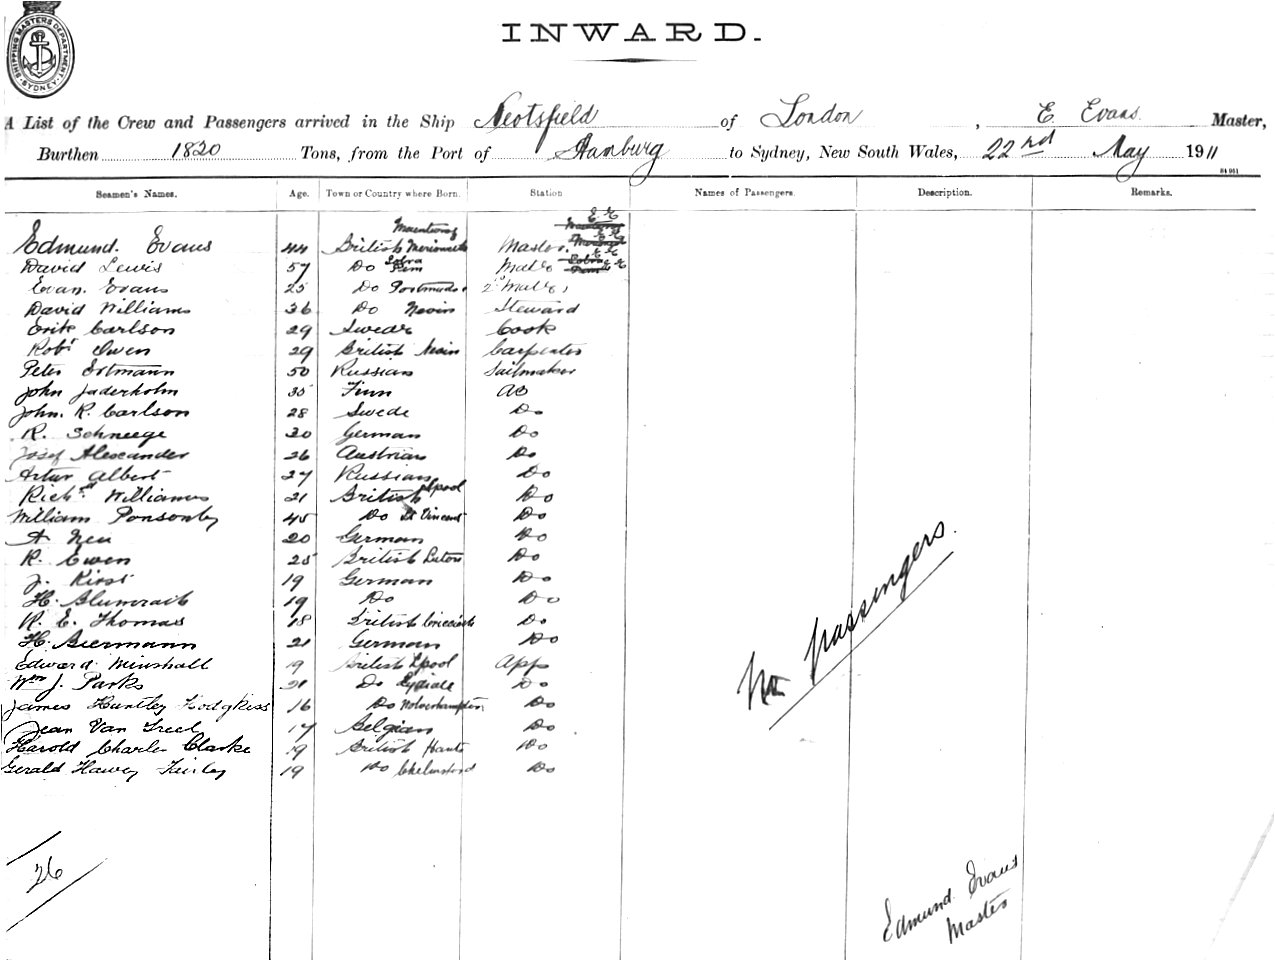 SHIPPING MASTERS DEPARTMENT SYDNEY
INWARD.
A List of the Crew and Passengers arrived in the Ship Neotsfield of London, E Evans Master,
Burthen 1820 Tons, from the Port of Hamburg to Sydney, New South Wales, 22nd May 1911
Seamen's Names. Age. Town or Country where Born. Station Names of Passengers. Description. Remarks.
Edmund Evans 44 British Merioneth Master
David Lewis 57 Do Mate
Evan Evans 25 Do Portmadoc 2nd Mate
David Williams 36 Do Nevin Steward
Erik Carlson 29 Swede Cook
Robt Owen 29 British Nevin Carpenter
Peter Ortmann 50 Russian Sailmaker
John Jaderholm 35 Finn AB
John. R. Carlson 28 Swede Do
R. Schneege 30 German Do
Josef Alexander 26 Austrian Do
Artur Albert 27 Russian Do
Richd Williams 21 British Lpool Do
William Ponsonby 45 Do St Vincent Do
A Neu 20 German Do
R. Ewen 25 British Do
J. Kirst 19 German Do
H. 19 Do Do
R. E. Thomas 18 British Criccieth Do
H. Biermann 21 German Do
Edward Minshall 19 British Lpool App
Wm J. Parks 21 Do Lydiate Do
James Huntley Hodgkiss 16 Do Wolverhampton Do
Jean Van 17 Belgian Do
Harold Charles Clarke 19 British Hants Do
Gerald Harvey 19 Do Chelmsford Do
No passengers.
26
Edmund Evans
Master